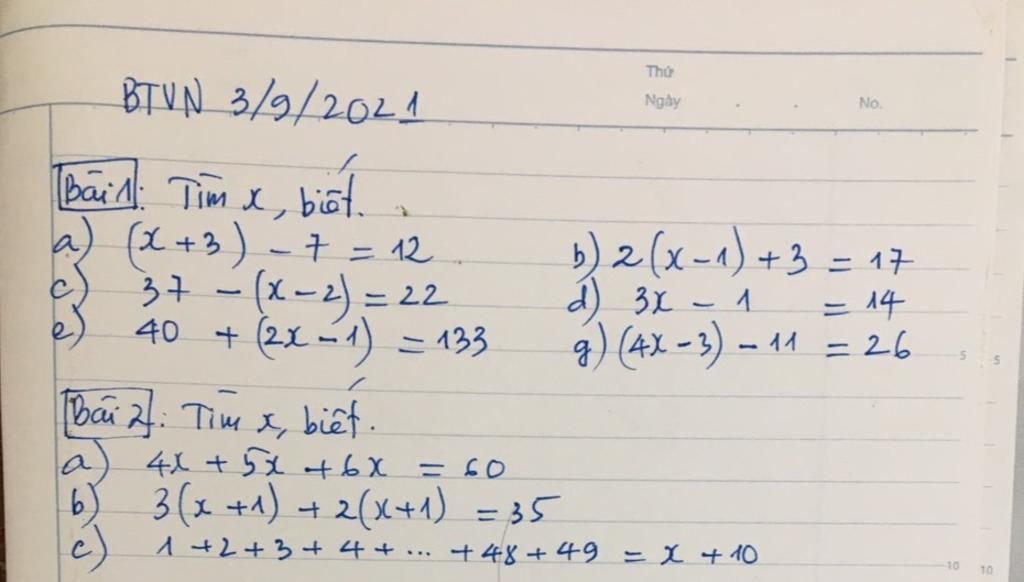 Thứ
Ngày . . No.
BTVN 3/9/2021
Bài 1: Tìm x, biết.
a) (x + 3) - 7 = 12 b) 2(x - 1) + 3 = 17
c) 37 - (x - 2) = 22 d) 3x - 1 = 14
e) 40 + (2x - 1) = 133 g) (4x - 3) - 11 = 26
5 5
Bài 2: Tìm x, biết.
a) 4x + 5x + 6x = 60
b) 3(x + 1) + 2(x + 1) = 35
c) 1 + 2 + 3 + 4 + ... + 48 + 49 = x + 10
10 10